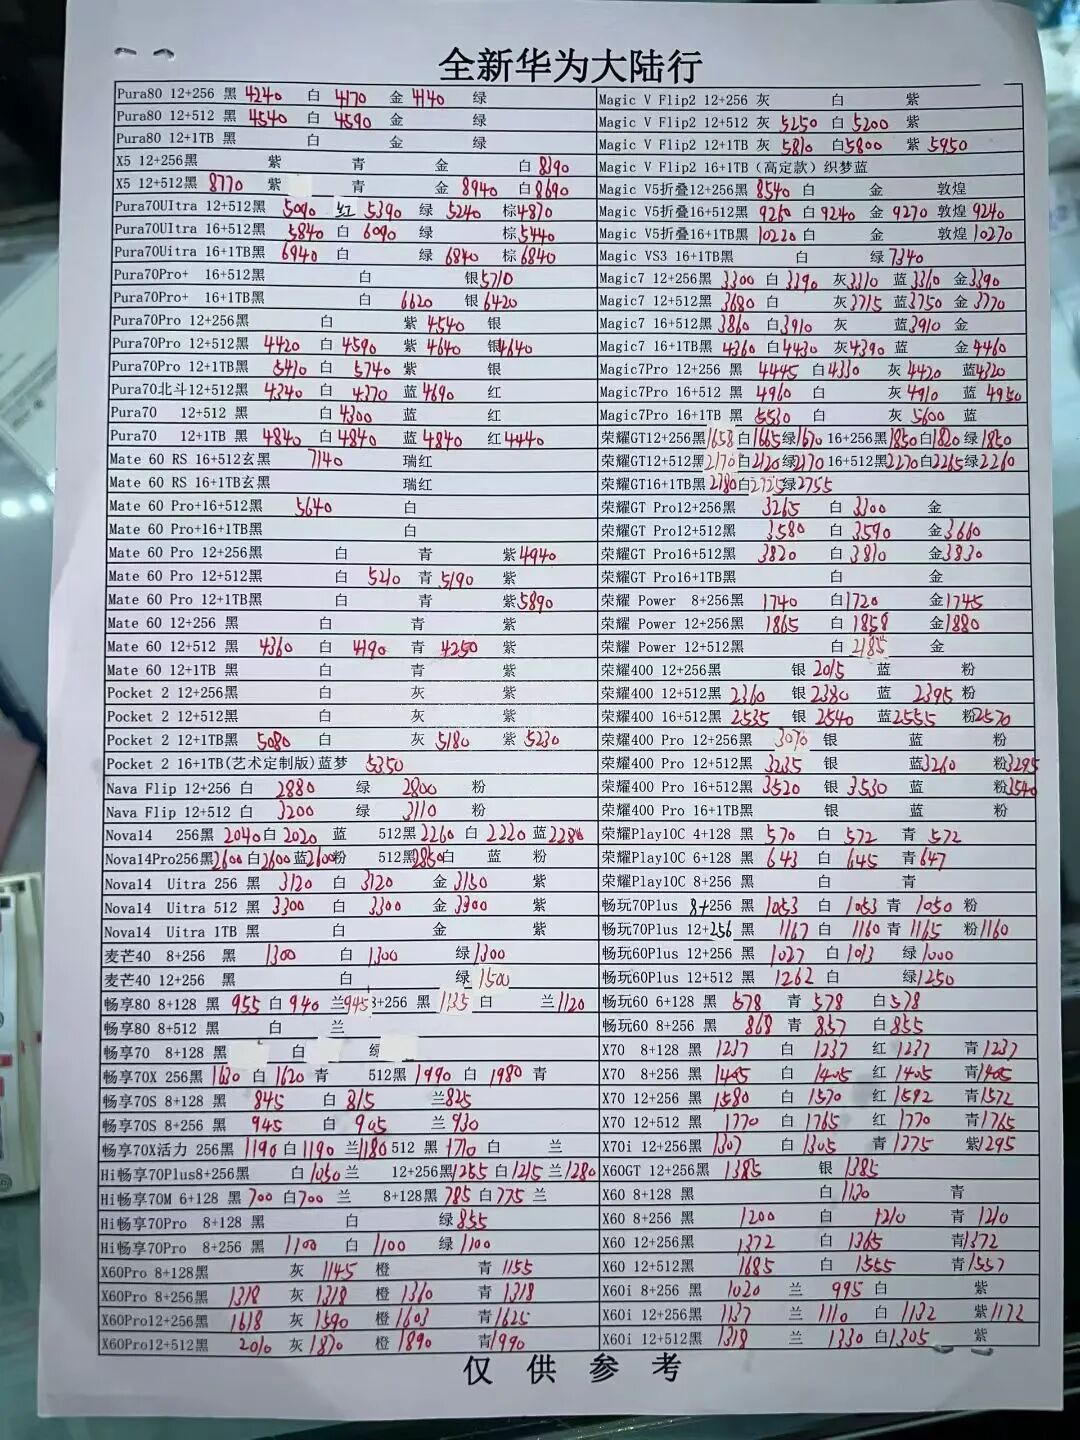 全新华为大陆行
Pura80 12+256 黑 4240 白 4170 金 4140 绿
Pura80 12+512 黑 4540 白 4590 金 绿
Pura80 12+1TB 黑 白 金 绿
X5 12+256黑 紫 青 金 白 8390
X5 12+512黑 8770 紫 青 金 8940 白 8690
Pura70UItra 12+512黑 5090 红 5390 绿 5240 棕4870
Pura70UItra 16+512黑 5840 白 6090 绿 棕5440
Pura70Uitra 16+1TB黑 6940 白 绿 6840 棕 6840
Pura70Pro+ 16+512黑 白 银5710
Pura70Pro+ 16+1TB黑 白 6620 银 6420
Pura70Pro 12+256黑 白 紫 4540 银
Pura70Pro 12+512黑 4420 白 4590 紫 4640 银4640
Pura70Pro 12+1TB黑 5410 白 5740 紫 银
Pura70北斗12+512黑 4340 白 4370 蓝 4690 红
Pura70 12+512 黑 白 4300 蓝 红
Pura70 12+1TB 黑 4840 白 4840 蓝 4840 红 4440
Mate 60 RS 16+512玄黑 7140 瑞红
Mate 60 RS 16+1TB玄黑 瑞红
Mate 60 Pro+16+512黑 5640 白
Mate 60 Pro+16+1TB黑 白
Mate 60 Pro 12+256黑 白 青 紫 4940
Mate 60 Pro 12+512黑 白 5210 青 5190 紫
Mate 60 Pro 12+1TB黑 白 青 紫5890
Mate 60 12+256 黑 白 青 紫
Mate 60 12+512 黑 4360 白 4190 青 4250 紫
Mate 60 12+1TB 黑 白 青 紫
Pocket 2 12+256黑 白 灰 紫
Pocket 2 12+512黑 白 灰 紫
Pocket 2 12+1TB黑 5080 白 灰 5180 紫 5230
Pocket 2 16+1TB(艺术定制版)蓝梦 5350
Nava Flip 12+256 白 2880 绿 2800 粉
Nava Flip 12+512 白 3200 绿 3110 粉
Nova14 256黑 2040 白 2020 蓝 512黑2260 白 2220 蓝2280
Nova14Pro256黑2600 白2600 蓝2600粉 512黑2850白 蓝 粉
Nova14 Uitra 256 黑 3120 白 3120 金 3150 紫
Nova14 Uitra 512 黑 3300 白 3300 金 3300 紫
Nova14 Uitra 1TB 黑 白 金 紫
麦芒40 8+256 黑 1300 白 1300 绿1300
麦芒40 12+256 黑 白 绿 1500
畅享80 8+128 黑 955 白 940 兰945 8+256 黑 1135 白 兰1120
畅享80 8+512 黑 白 兰
畅享70 8+128 黑 白
畅享70X 256黑1630 白 1620 青 512黑1990 白 1980 青
畅享70S 8+128 黑 845 白 815 兰825
畅享70S 8+256 黑 945 白 905 兰930
畅享70X活力 256黑 1190 白 1190 兰1180 512 黑 1710 白 兰
Hi畅享70Plus8+256黑 白 1050 兰 12+256黑1255 白1215 兰1280
Hi畅享70M 6+128 黑 700 白700 兰 8+128黑 785 白 775 兰
Hi畅享70Pro 8+128 黑 白 绿855
Hi畅享70Pro 8+256 黑 1100 白 1100 绿 1100
X60Pro 8+128黑 灰 1145 橙 青 1155
X60Pro 8+256黑 1318 灰 1318 橙 1360 青 1318
X60Pro12+256黑 1618 灰 1590 橙 1603 青1625
X60Pro12+512黑 2010 灰 1870 橙 1890 青1990
Magic V Flip2 12+256 灰 白 紫
Magic V Flip2 12+512 灰 5250 白 5200 紫
Magic V Flip2 12+1TB 灰 5810 白5800 紫 5950
Magic V Flip2 16+1TB (高定款) 织梦蓝
Magic V5折叠12+256黑 8540 白 金 敦煌
Magic V5折叠16+512黑 9260 白 9240 金 9270 敦煌 9240
Magic V5折叠16+1TB黑 10220 白 金 敦煌 10270
Magic VS3 16+1TB黑 白 绿 7340
Magic7 12+256黑 3300 白 3390 灰3310 蓝 3360 金3390
Magic7 12+512黑 3680 白 灰3715 蓝3750 金 3770
Magic7 16+512黑 3860 白3910 灰 蓝3910 金
Magic7 16+1TB黑 4360 白4430 灰4390 蓝 金 4460
Magic7Pro 12+256 黑 4445 白4330 灰 4420 蓝4320
Magic7Pro 16+512 黑 4960 白 灰 4910 蓝 4950
Magic7Pro 16+1TB 黑 5530 白 灰 5600 蓝
荣耀GT12+256黑1658 白1665绿1670 16+256黑1850白1820绿 1850
荣耀GT12+512黑2170白2120绿2170 16+512黑2270白2265绿 2260
荣耀GT16+1TB黑 2780白2725绿2755
荣耀GT Pro12+256黑 3265 白 3300 金
荣耀GT Pro12+512黑 3580 白 3590 金3660
荣耀GT Pro16+512黑 3820 白 3810 金3830
荣耀GT Pro16+1TB黑 白 金
荣耀 Power 8+256黑 1740 白1720 金1745
荣耀 Power 12+256黑 1865 白 1858 金1880
荣耀 Power 12+512黑 白 2185 金
荣耀400 12+256黑 银 2015 蓝 粉
荣耀400 12+512黑 2360 银2380 蓝 2395 粉
荣耀400 16+512黑 2535 银 2540 蓝2555 粉2570
荣耀400 Pro 12+256黑 3070 银 蓝 粉
荣耀400 Pro 12+512黑 3235 银 蓝3260 粉3295
荣耀400 Pro 16+512黑 3520 银 3530 蓝 粉3540
荣耀400 Pro 16+1TB黑 银 蓝 粉
荣耀Play10C 4+128 黑 570 白 572 青 572
荣耀Play10C 6+128 黑 643 白 645 青647
荣耀Play10C 8+256 黑 白 青
畅玩70Plus 8+256 黑 1053 白 1053 青 1050 粉
畅玩70Plus 12+256 黑 1167 白 1160 青 1165 粉1160
畅玩60Plus 12+256 黑 1027 白 1013 绿 1000
畅玩60Plus 12+512 黑 1262 白 绿1250
畅玩60 6+128 黑 578 青 578 白578
畅玩60 8+256 黑 868 青 857 白855
X70 8+128 黑 1237 白 1237 红 1237 青1237
X70 8+256 黑 1405 白 1405 红 1405 青1405
X70 12+256 黑 1580 白 1570 红 1592 青1572
X70 12+512 黑 1770 白 1765 红 1770 青1765
X70i 12+256黑 1307 白 1305 青 1275 紫1295
X60GT 12+256黑 1385 银 1385
X60 8+128 黑 白 1130 青
X60 8+256 黑 1200 白 1210 青 1210
X60 12+256黑 1372 白 1365 青1372
X60 12+512黑 1685 白 1555 青1557
X60i 8+256 黑 1020 兰 995 白 紫
X60i 12+256黑 1137 兰 1110 白 1132 紫1172
X60i 12+512黑 1318 兰 1330 白1305 紫
仅供参考